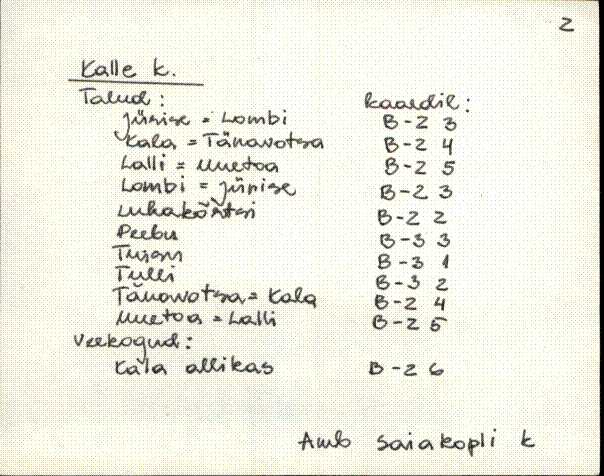 2
Kalle k.
Talud: kaardil:
Jürise = Lombi B-2 3
Kala = Tänavotsa B-2 4
Lalli = Uuetoa B-2 5
Lombi = Jürise B-2 3
Luhakõrtsi B-2 2
Peebu B-3 3
B-3 1
Tulli B-3 2
Tänavotsa = Kala B-2 4
Uuetoa = Lalli B-2 5
Veekogud:
Kala allikas B-2 6
Amb Saiakopli k